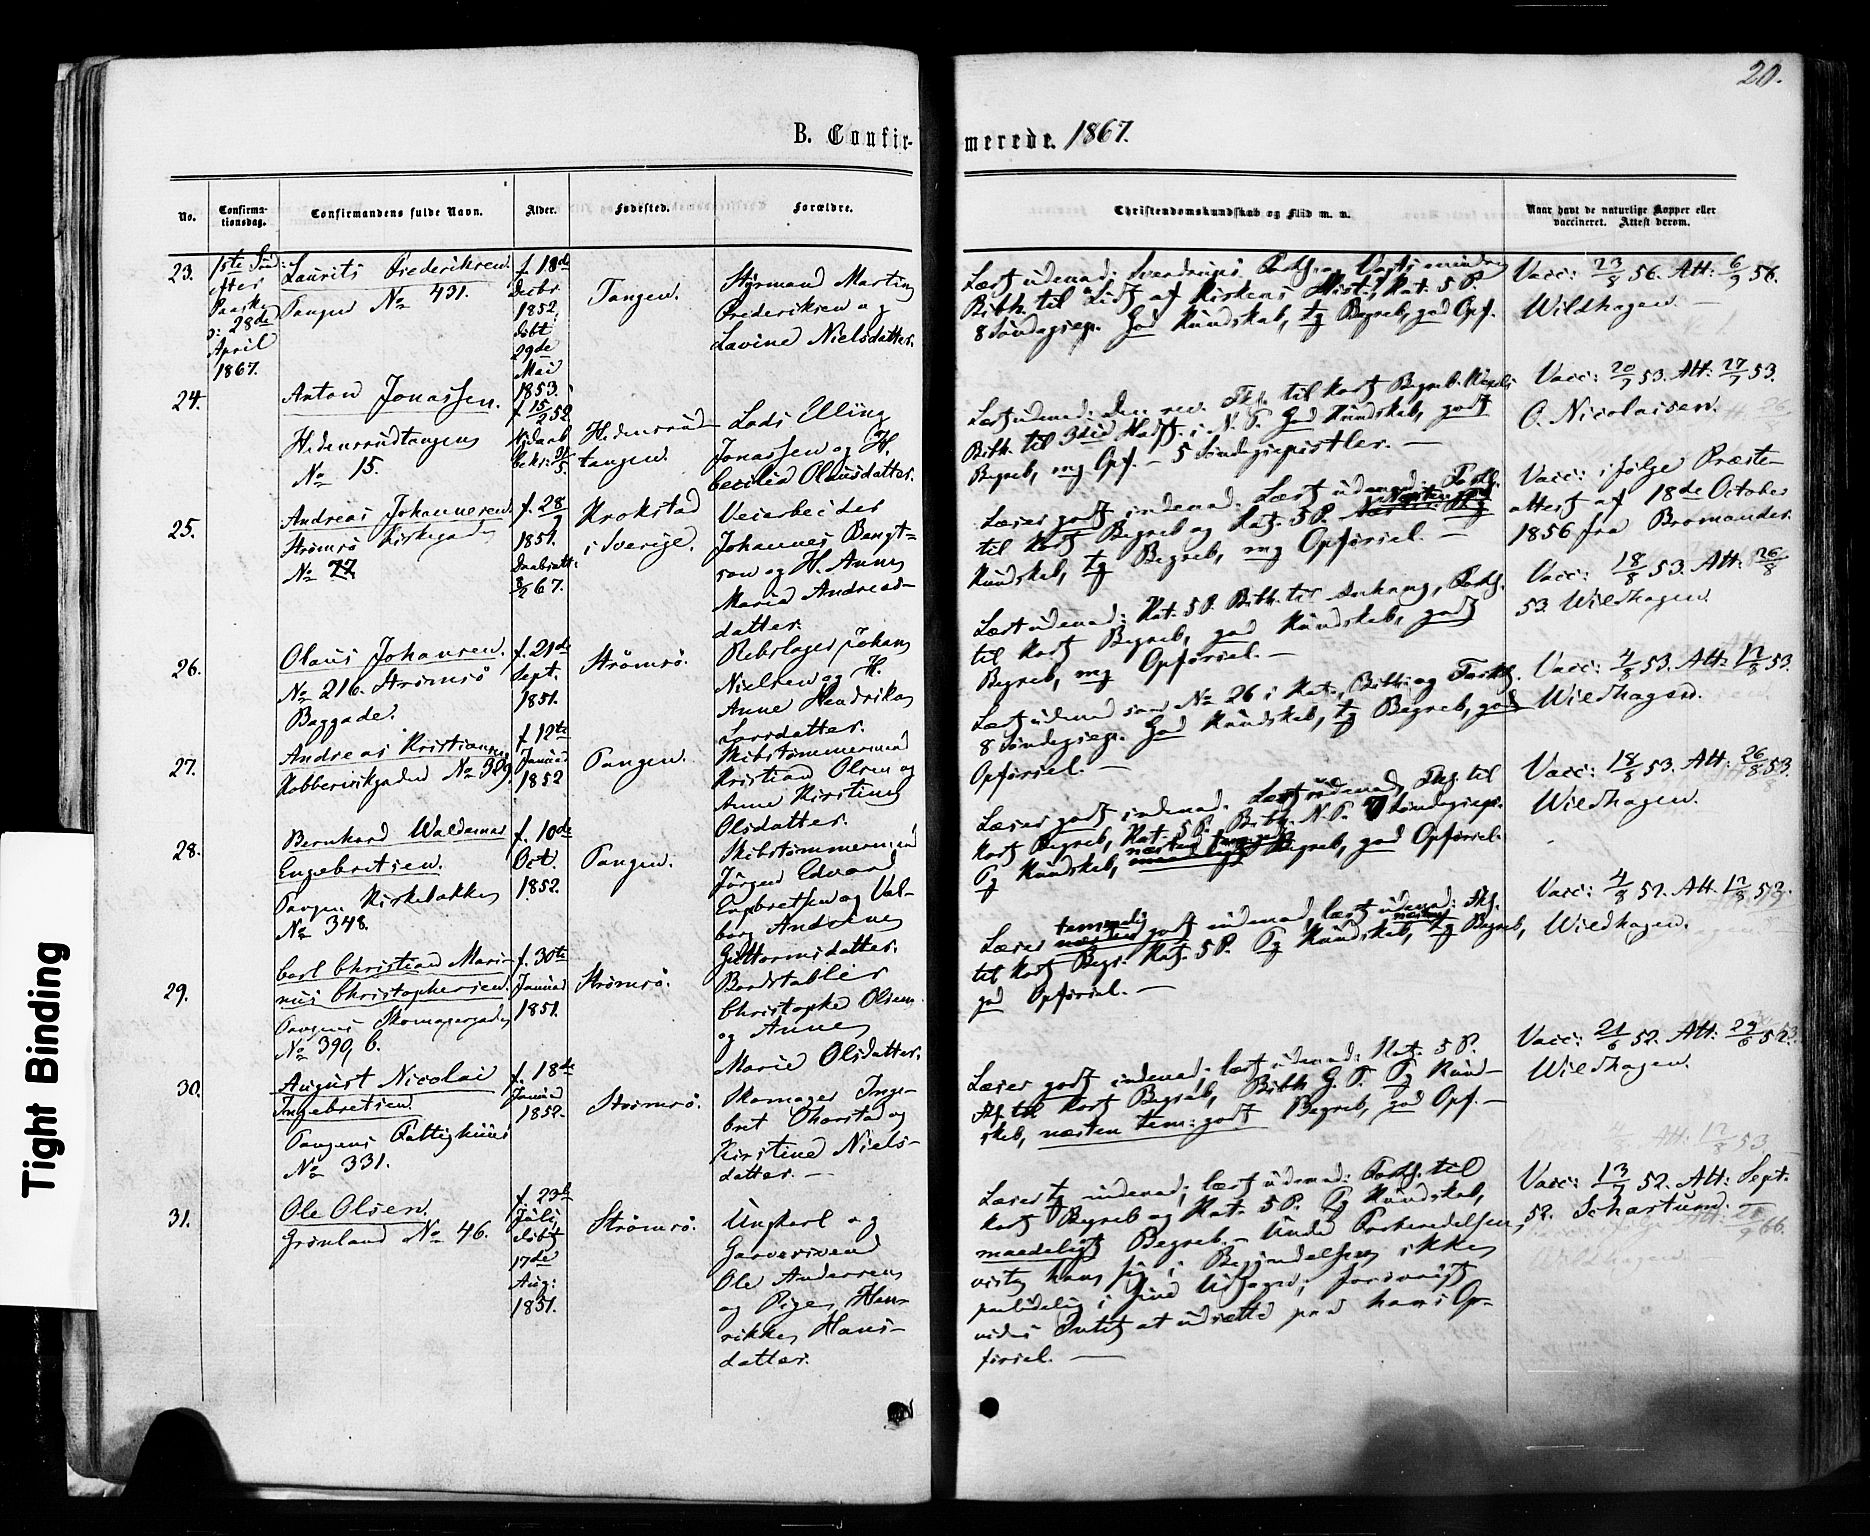 20.
B. Confir-
merede. 1867.
No.
Confirma-
tionsdag.
Confirmandens fulde Navn.
Alder.
Fødested.
Forældre.
Christendomskundskab og Flid m. v.
Naar havt de naturlige Kopper eller
vaccineret. Attest derom.
23.
1ste Sønd:
efter
Paaske
28de
April
1867.
Laurits Frederiksen.
Tangen No 431.
f. 18de
Decbr.
1852,
døbt
29de
Mai
1853.
Tangen.
Styrmand Martin
Frederiksen og
Lavine Nielsdatter.
Læst udenad: Sverdrups Forkl. og Vogts mindre
Bibh. til Udt. af Kirkens Hist., Kat. 5 P.
8 Søndagsep. God Kundskab, tg Begreb, god Opf.
Vacc: 23/8 56. Att: 6/9 56.
Wildhagen.
24.
Anton Jonassen.
Hedensrudtangen
No 15.
f. 15/2 52
Hedensrud-
tangen.
Lods Elling
Jonassen og H.
Cecilia Olausdatter.
Læst udenad: den rev. Fkl. til kort Begreb.
Bibh. til i N. T. God Kundskab, godt
Begreb, mg Opf. – 5 Søndagsepistler. –
Vacc: 20/7 53. Att: 27/7 53.
O. Nicolaisen.
25.
Andreas Johannesen.
Strømsø Kirkegade
No 77
f. 28
1851.
67.
Krokstad
i Sverige.
Veiarbeider
Johannes Bengt=
son og H. Anna
Maria Andreas-
datter.
Læser godt indenad. Læst udenad: Forkl.
til kort Begreb og Kat. 5 P.
Kundskab, tg Begreb, mg Opførsel. –
Vacc: ifølge Præste-
attest af 18de October
1856 fra
26.
Olaus Johansen.
No 216. Strømsø
Baggade.
f. 21de
Sept.
1851.
Strømsø.
Rebslager Johan
Nielsen og H.
Anne Hendrika
Larsdatter.
Læst udenad: Kat. 5 P. Bibh. til Anhang, Forkl.
til kort Begreb, god Kundskab, godt
Begreb, mg Opførsel. –
Vacc: 18/8 53. Att: 26/8
53. Wildhagen.
27.
Andreas Kristiansen
Kobbervikgaden No 329
f. 12te
Januar
1852
Tangen.
Skibstømmermand
Kristian Olsen og
Anne Kirstine
Olsdatter.
Læst udenad som No 26 i Kat., Bibh. og Forkl.
8 Søndagsep. God Kundskab, tg Begreb, god
Opførsel. –
Vacc: 4/8 53. Att: 12/8 53.
Wildhagen.
28.
Bernhard Waldemar
Engebretsen.
Tangen Kirkebakke
No 348.
f. 10de
Oct.
1852.
Tangen.
Skibstømmermand
Jørgen Edvard
Engbretsen og Val-
borg Andrine
Guttormsdatter.
Læser godt indenad. Læst udenad, Fkl. til
kort Begreb, Kat. 5 P. Bibh. N. T. 7 Søndagsep.
Tg Kundskab, Begreb, god Opførsel.
Vacc: 18/8 53. Att: 26/8 53.
Wildhagen.
29.
Carl Christian Mari-
nus Christophersen.
Tangens Skomagergade
No 390, b.
f. 30te
Januar
1851.
Strømsø.
Bordstabler
Christophe Olsen
og Anne
Marie Olsdatter.
Læser temmelig godt indenad, læst udenad: Fkl.
til kort Begr. Kat. 5 P. Tg Kundskab, næsten tg Begreb,
god Opførsel. –
Vacc: 4/8 52. Att. 12/8 53.
Wildhagen.
30.
August Nicolai
Ingebretsen
Tangens Fattighuus
No 331.
f. 18de
Januar
1852.
Strømsø.
Skomager Inge-
bret Thorstad og
Kirstine Niels-
datter. –
Læser godt indenad, læst udenad: Kat. 5 P.
Fkl. til kort Begreb, Bibh. G. T. Tg Kund-
skab, næsten tem: godt Begreb, god Opf. –
Vacc: 21/6 52. Att: 29/6 52
Wildhagen.
31.
Ole Olsen.
Grønland No 46.
f. 23de
Juli
døbt
17de
Aug:
1851.
Strømsø.
Ungkarl og
Garversvend
Ole Andersen
og Pige Hen-
rikke Hans-
datter.
Læser tg indenad; læst udenad: Forkl. til
kort Begreb og Kat. 5 P. Tg Kundskab,
maadeligt Begreb. – Under Forberedelsen
viste han sig i Begyndelsen ikke
paalidelig i sine Udsagn; forøvrigt
vides Intet at udsætte paa hans Op-
førsel. –
Vacc: 13/7 52. Att: Sept.
52. Schartum.
Tight Binding